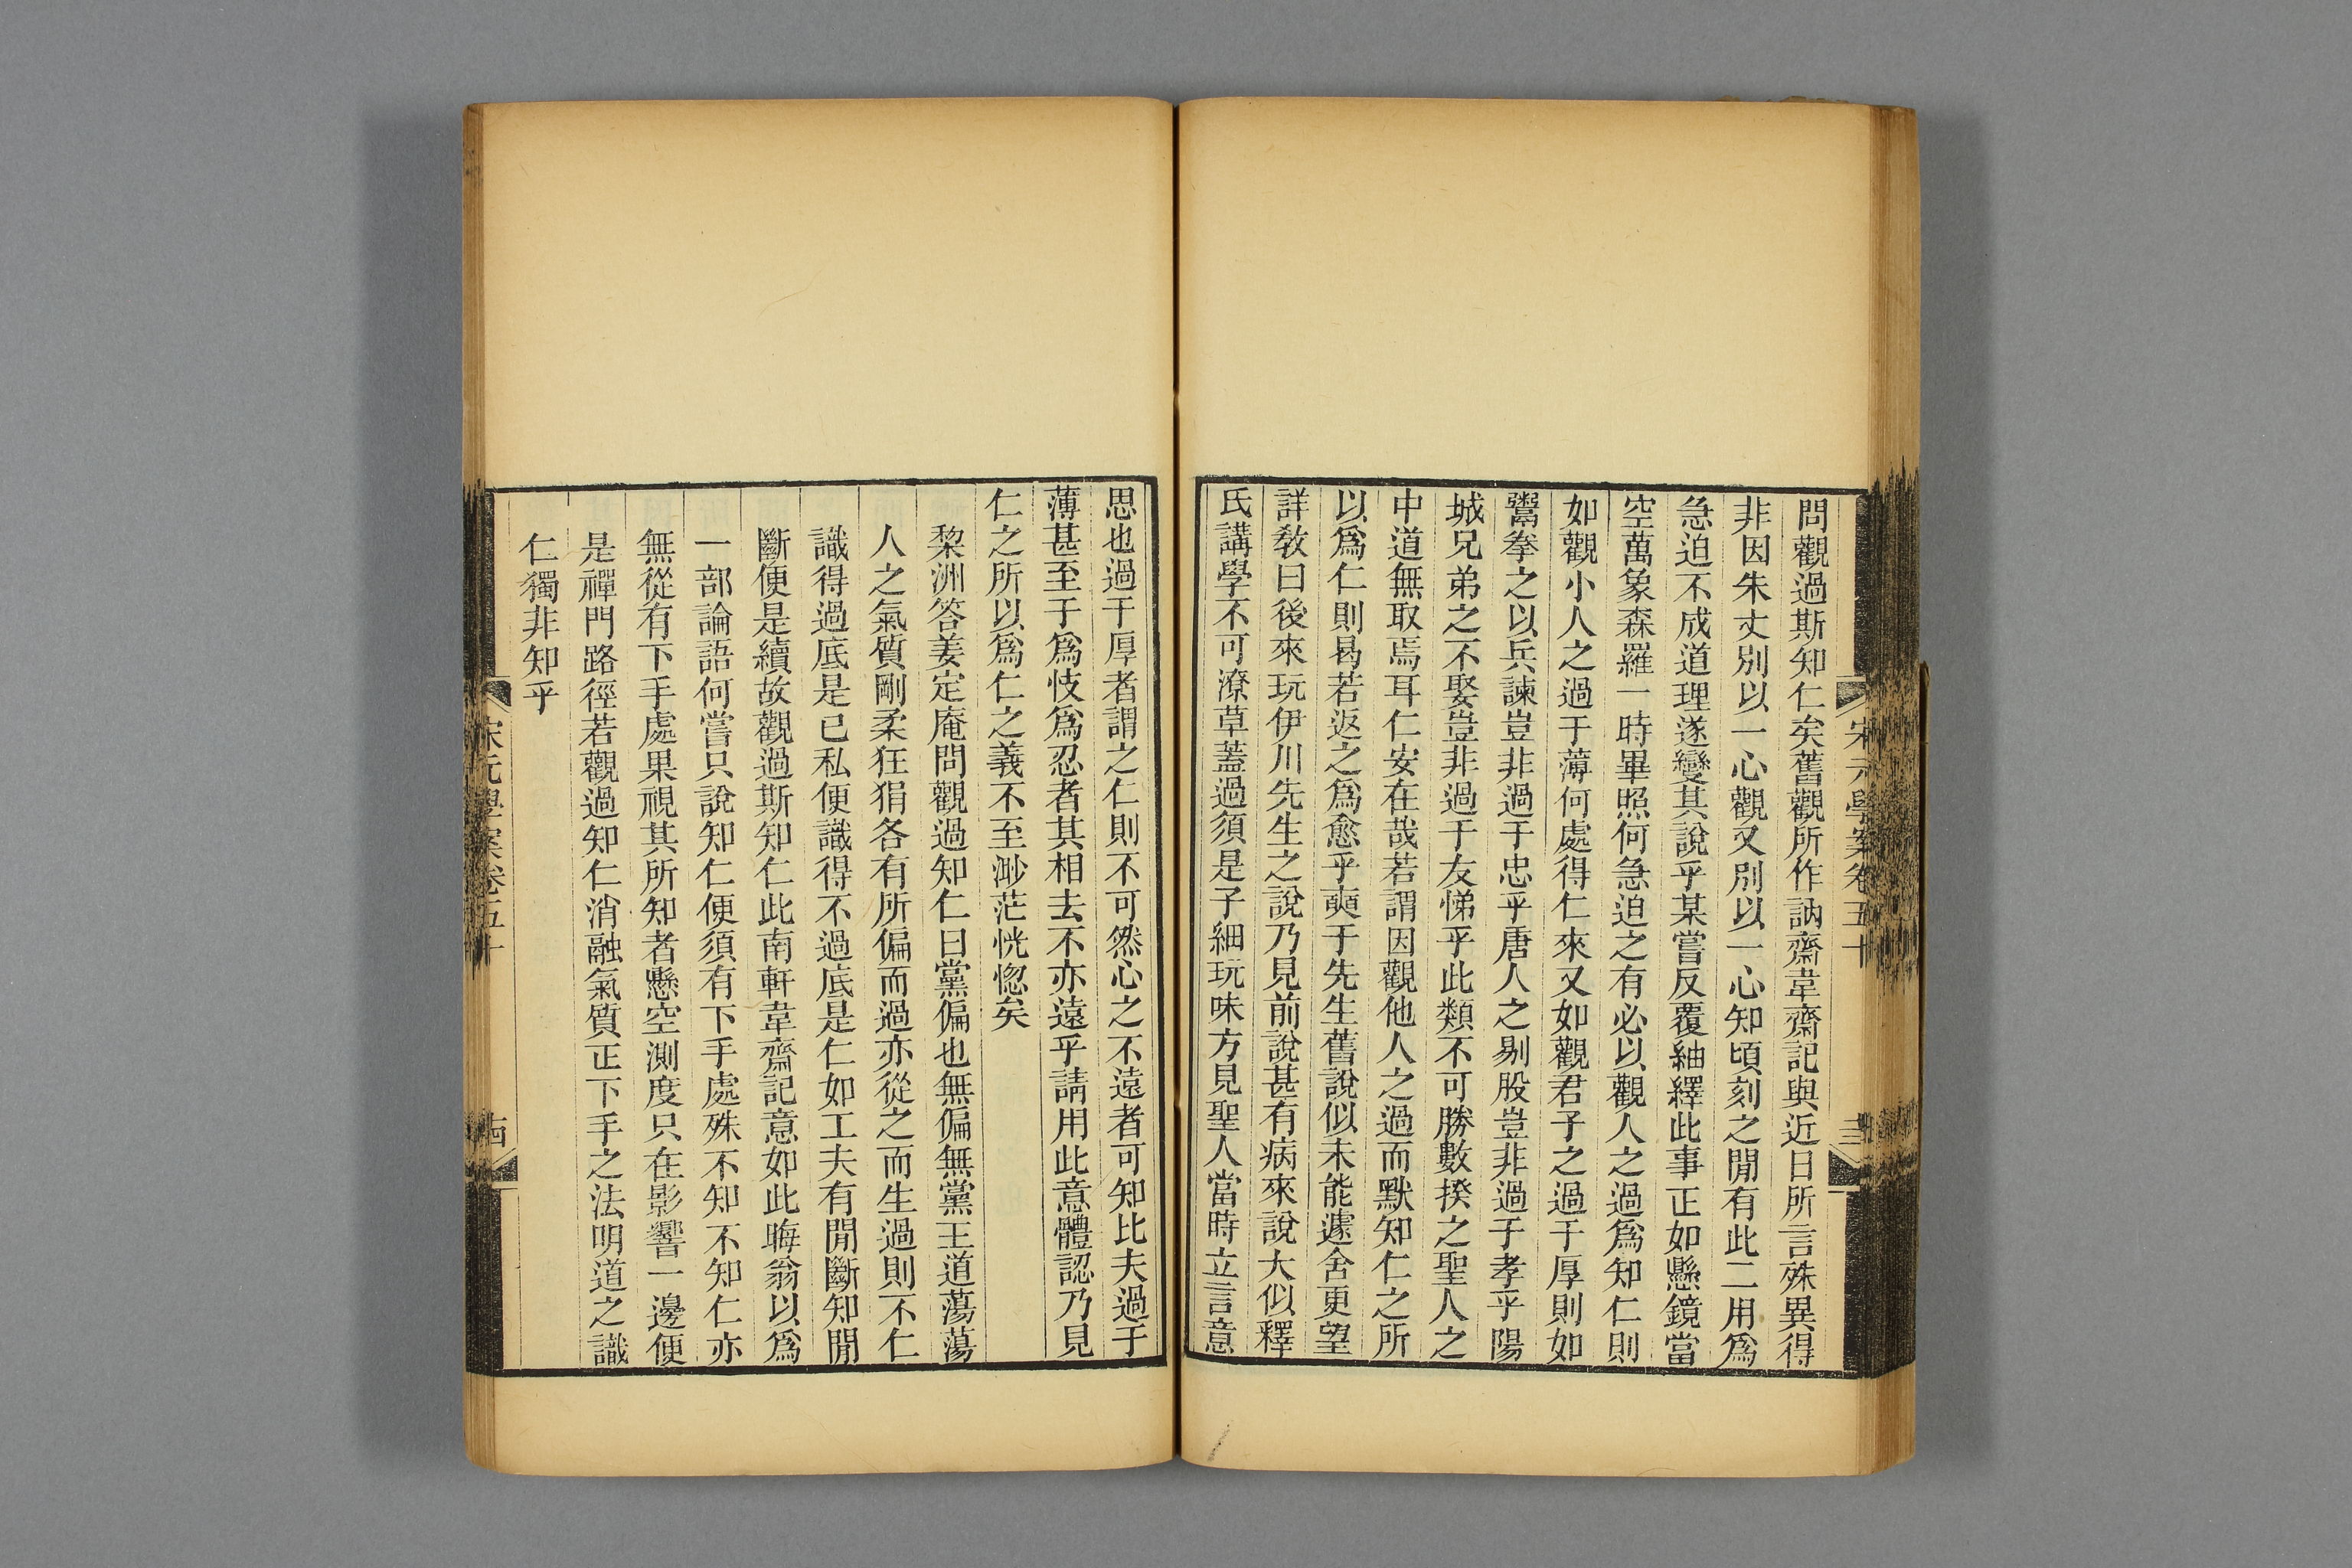 宋元學案卷五十
問觀過斯知仁矣舊觀所作訥齋韋齋記與近日所言殊異得
非因朱丈別以一心觀又別以一心知頃刻之閒有此二用爲
急迫不成道理遂變其說乎某嘗反覆紬繹此事正如懸鏡當
空萬象森羅一時畢照何急迫之有必以觀人之過爲知仁則
如觀小人之過于薄何處得仁來又如觀君子之過于厚則如
鬻拳之以兵諫豈非過于忠乎唐人之剔股豈非過于孝乎陽
城兄弟之不娶豈非過于友悌乎此類不可勝數揆之聖人之
中道無取焉耳仁安在哉若謂因觀他人之過而默知仁之所
以爲仁則曷若返之爲愈乎奭于先生舊說似未能遽舍更望
詳敎曰後來玩伊川先生之說乃見前說甚有病來說大似釋
氏講學不可潦草蓋過須是子細玩味方見聖人當時立言意
思也過于厚者謂之仁則不可然心之不遠者可知比夫過于
薄甚至于爲忮爲忍者其相去不亦遠乎請用此意體認乃見
仁之所以爲仁之義不至渺茫恍惚矣
黎洲答姜定庵問觀過知仁曰黨偏也無偏無黨王道蕩蕩
人之氣質剛柔狂狷各有所偏而過亦從之而生過則不仁
識得過底是己私便識得不過底是仁如工夫有閒斷知閒
斷便是續故觀過斯知仁此南軒韋齋記意如此晦翁以爲
一部論語何嘗只說知仁便須有下手處殊不知不知仁亦
無從有下手處果視其所知者懸空測度只在影響一邊便
是禪門路徑若觀過知仁消融氣質正下手之法明道之識
仁獨非知乎
宋元學案卷五十